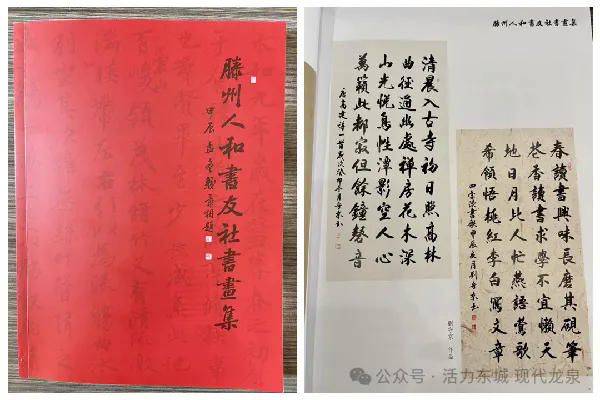 滕州人和書友社書畫集
滕州人和書友社書畫集
清晨入古寺初日照高林
曲徑通幽處禪房花木深
山光悅鳥性潭影空人心
萬籟此都寂但餘鐘磬音
春讀書興味長磨其硯筆
花香讀書求學不宜懶天
地日月比人忙燕語鶯歌
希領悟桃紅李白寫文章
作品
公众号 · 活力东城 现代龙泉